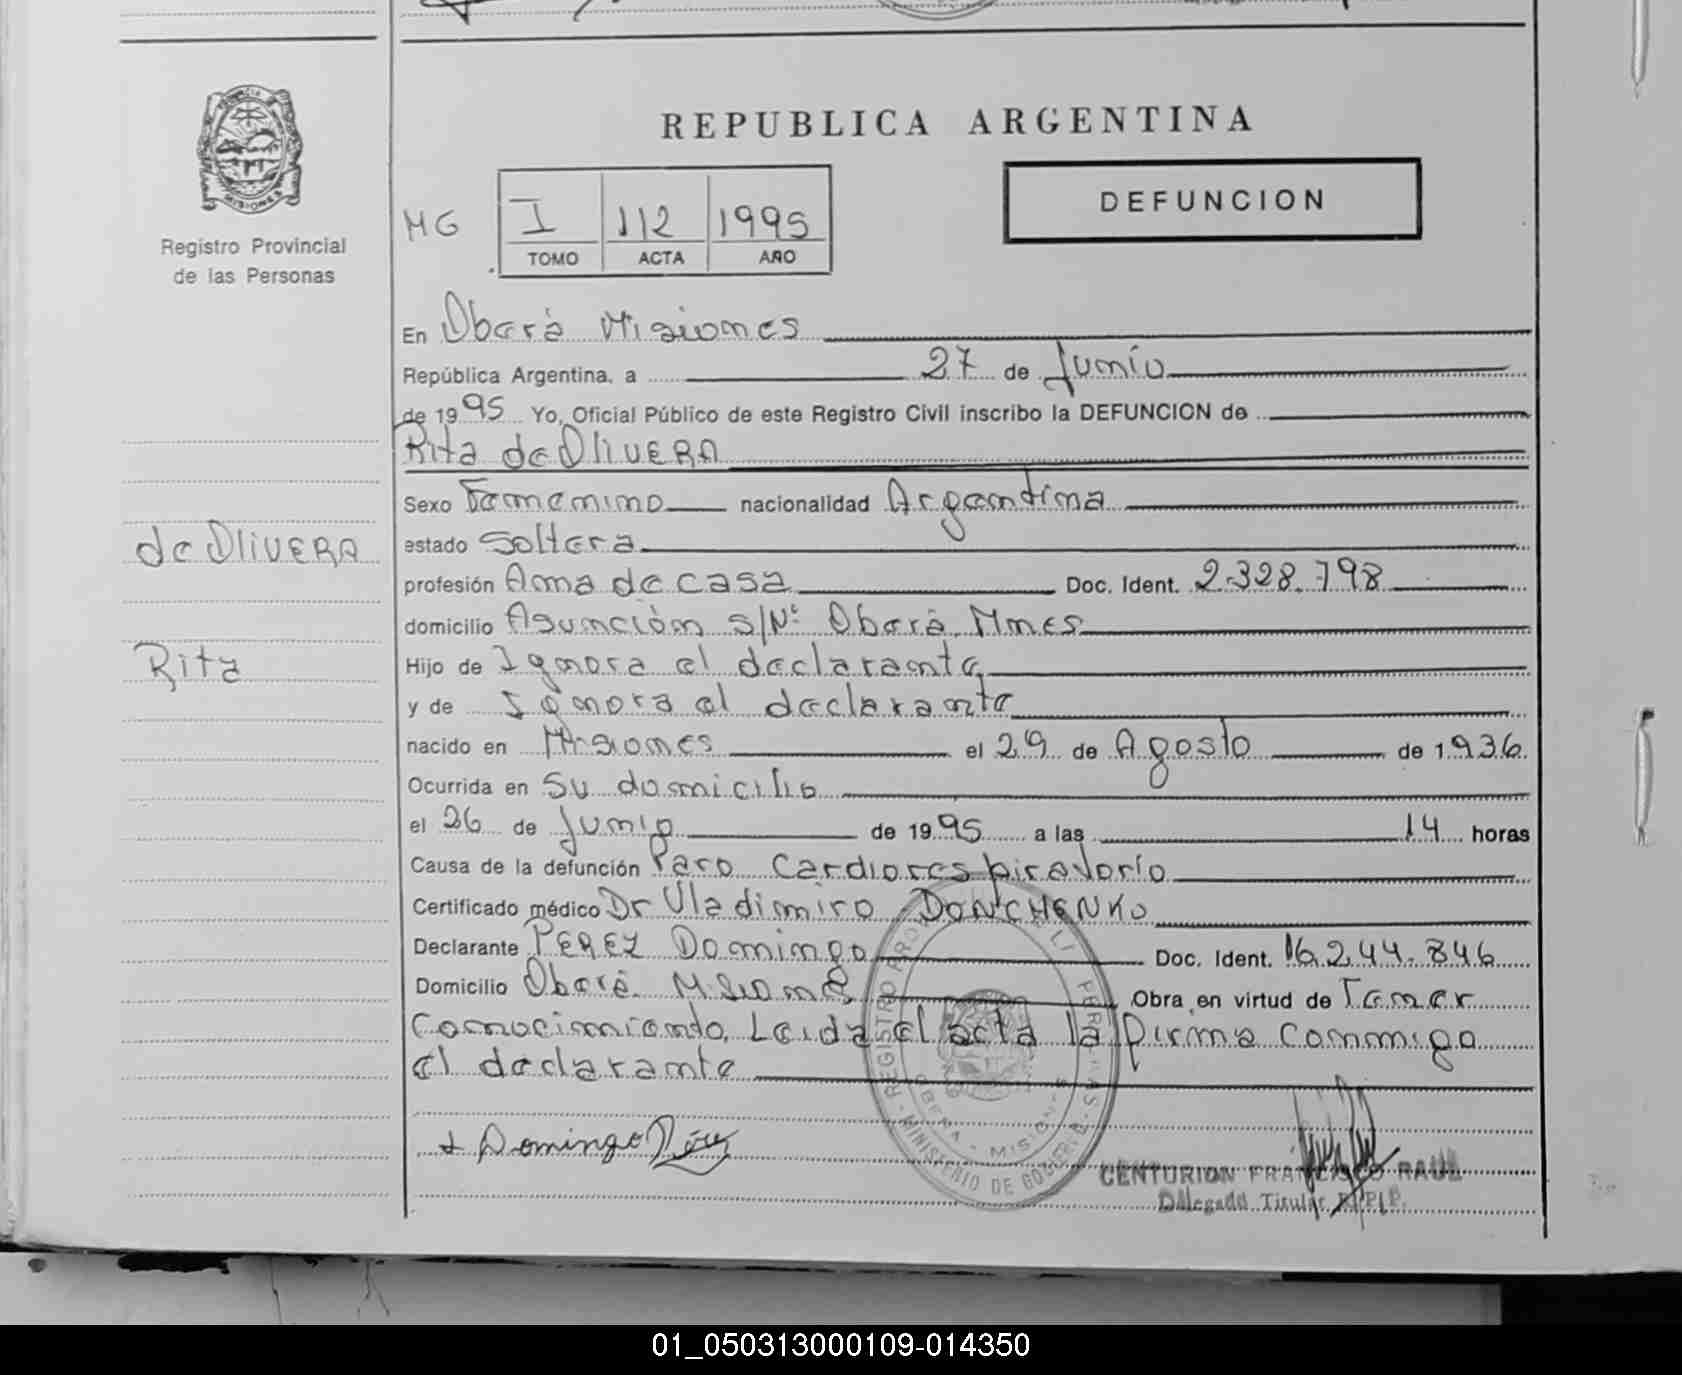 REPUBLICA ARGENTINA
PROVINCIA
MISIONES
Registro Provincial
de las Personas
MG
I 112 1995
TOMO ACTA AÑO
DEFUNCION
En Oberá Misiones
República Argentina, a 27 de Junio
de 1995 Yo, Oficial Público de este Registro Civil inscribo la DEFUNCION de
Rita de OliVERA
de OliVERA
Rita
Sexo Femenino nacionalidad Argentina
estado Soltera
profesión Ama de casa Doc. Ident. 2.328.798
domicilio Asunción s/Nº Oberá Mnes
Hijo de Ignora el declarante
y de Ignora el declarante
nacido en Misiones el 29 de Agosto de 1936
Ocurrida en Su domicilio
el 26 de Junio de 1995 a las 14 horas
Causa de la defunción Paro Cardiorespiratorio
Certificado médico Dr Vladimiro DONCHENKO
Declarante PEREZ Domingo Doc. Ident. 16.244.846
Domicilio Oberá Misiones Obra en virtud de Tener
Conocimiento, Leida el acta la firma conmigo
el declarante
Domingo Pérez
REGISTRO PROV DE LAS PERSONAS
OBERA - MISIONES
MINISTERIO DE GOBIERNO
CENTURION FRANCISCO RAUL
Delegado Titular R.P.P.
01_050313000109-014350